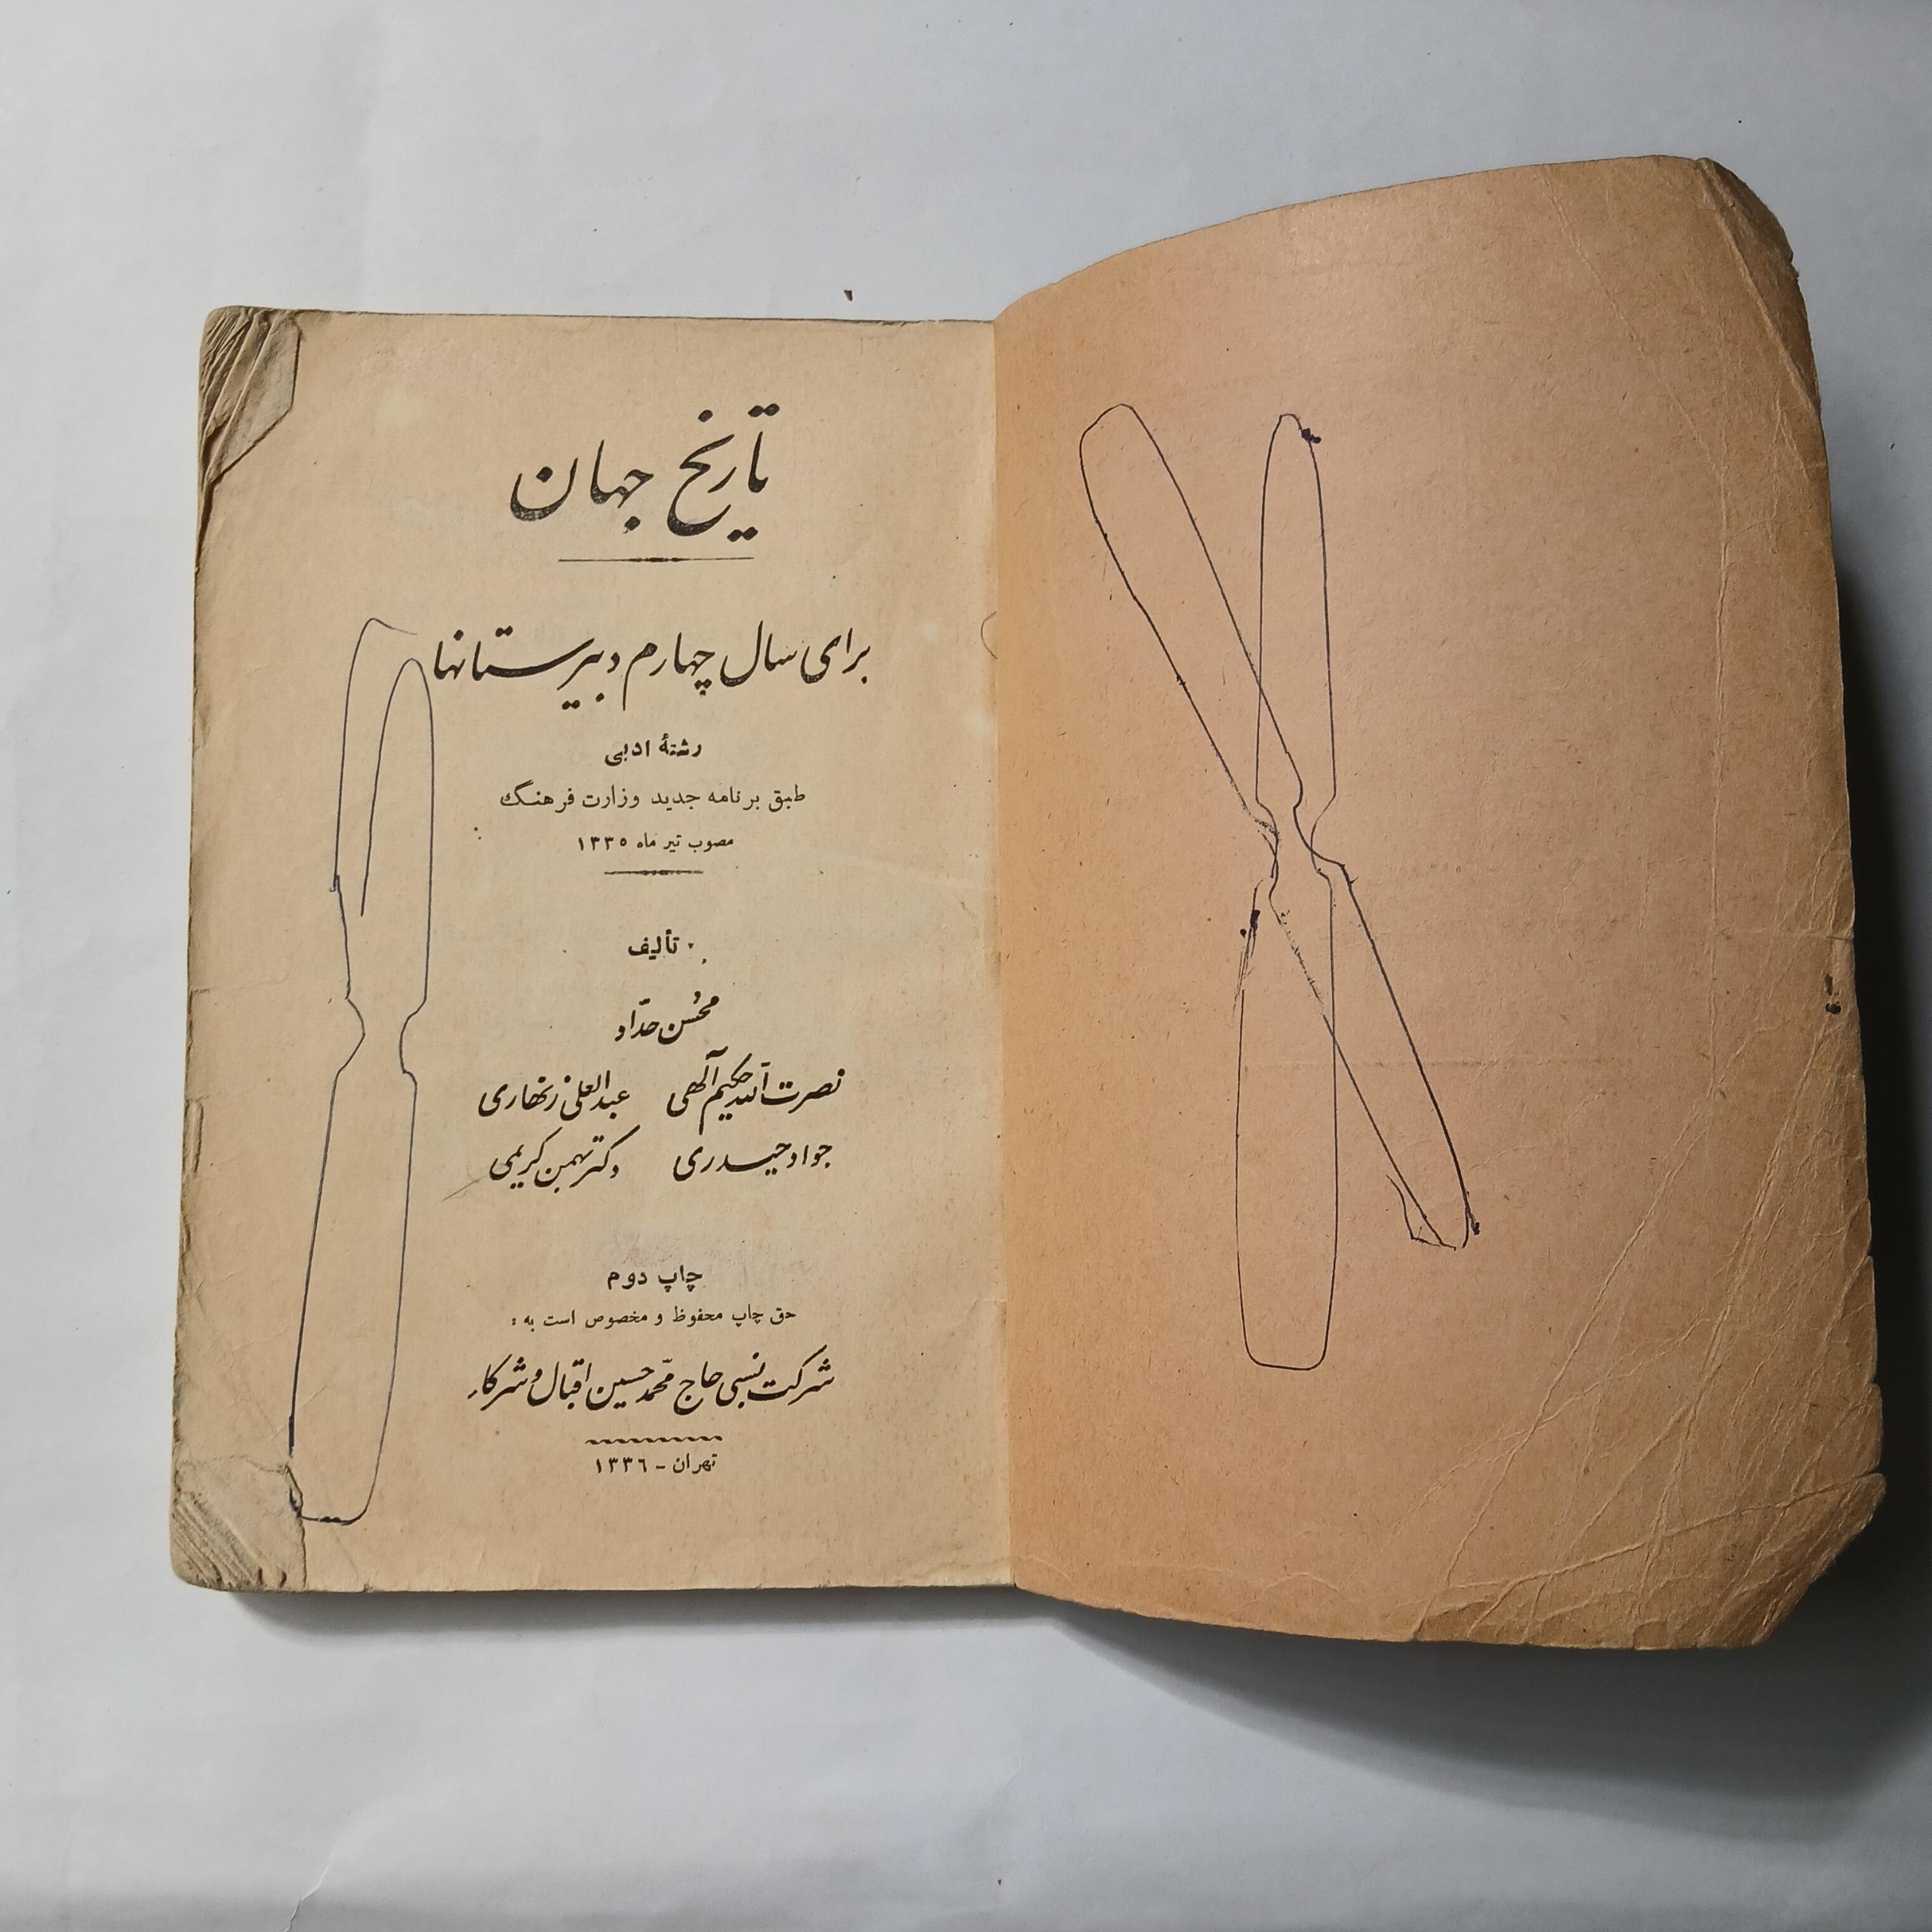 تاریخ جهان
برای سال چهارم دبیرستانها
رشتهٔ ادبی
طبق برنامه جدید وزارت فرهنگ
مصوب تیر ماه ۱۳۳۵
تألیف
محسن حدّاد
نصرت الله حکیم آلهی عبدالعلی زنهاری
جواد حیدری دکتر بهمن کریمی
چاپ دوم
حق چاپ محفوظ و مخصوص است به :
شرکت نسبی حاج محمّد حسین اقبال و شرکاء
تهران - ۱۳۳۶